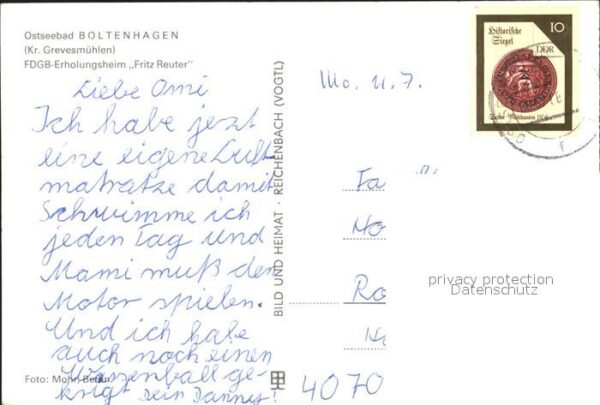 Ostseebad BOLTENHAGEN
(Kr. Grevesmühlen)
FDGB-Erholungsheim „Fritz Reuter"
Liebe Omi
Ich habe jezt
eine eigene Luft
matratze damit
Schwimme ich
jeden Tag und
Mami muß den
Motor spielen.
Und ich habe
auch noch einen
Wasserball ge-
krigt Dein Dannis!
Foto: Mohn Berlin
BILD UND HEIMAT · REICHENBACH (VOGTL)
Mo. 11.7.
Historische
Siegel
10
DDR
Fa
Ho
Ro
4070
privacy protection
Datenschutz